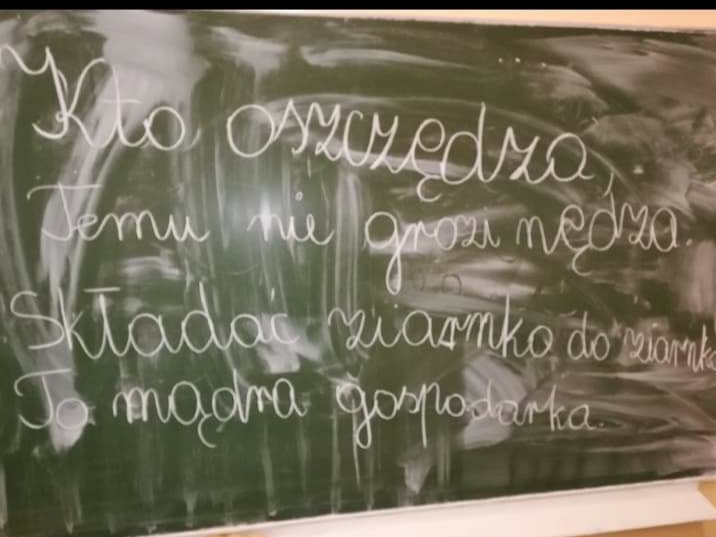 Kto oszczędza,
Temu nie grozi nędza.
Składać ziarnko do ziarnka
To mądra gospodarka.